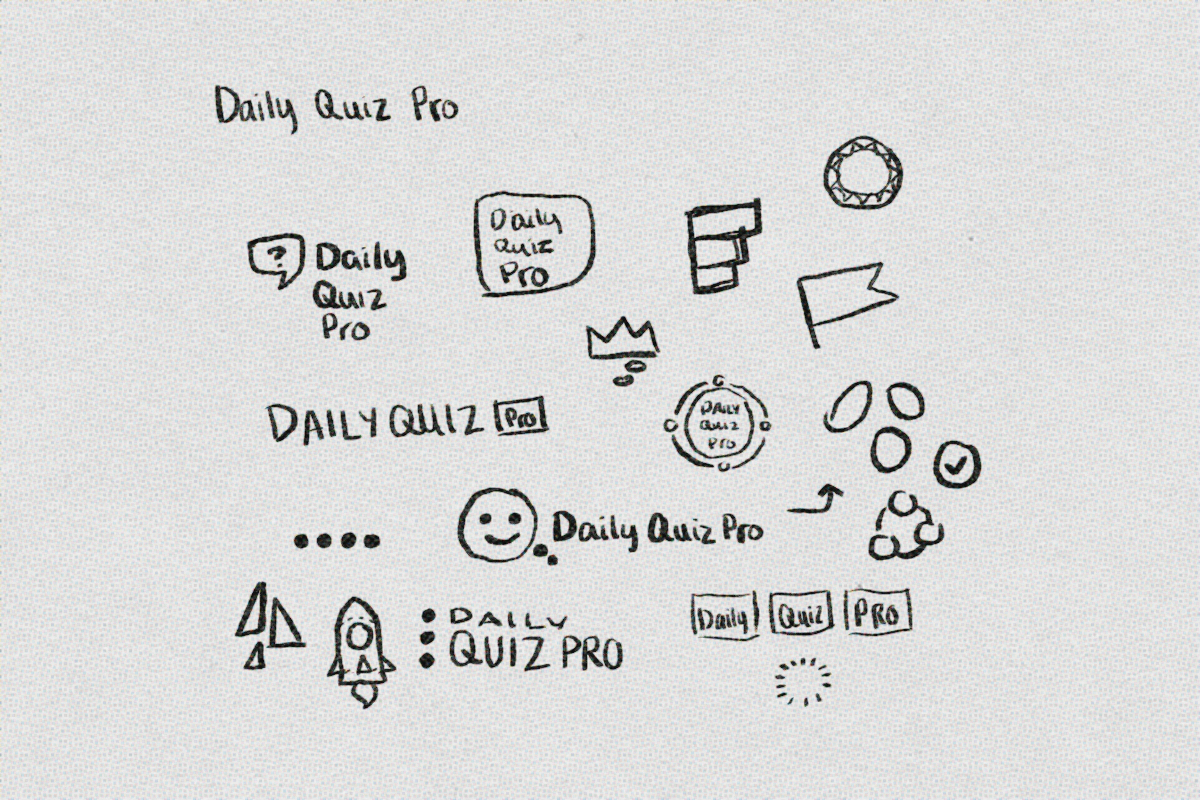 Daily Quiz Pro
Daily
Quiz
Pro
?
Daily
Quiz
Pro
DAILY QUIZ Pro
DAILY
QUIZ
PRO
Daily Quiz Pro
DAILY
QUIZ PRO
Daily Quiz PRO